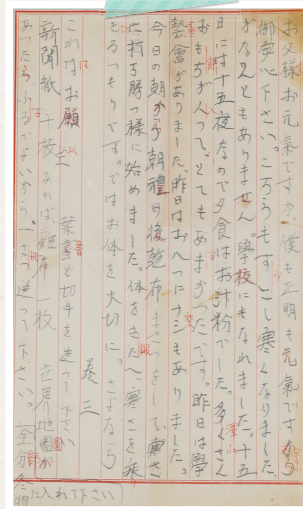 お父様お元氣ですか。僕も正明も元氣ですから
御安心下さい。こちらもすこし寒くなりました
がなんともありません。學校にもなれました。十五
日には十五夜なので夕食はお汁粉でした。多くさん
おもちが入ってとてもあまかったです。昨日は學
藝會がありました。昨日はおへつに ナシもありました。
今日の朝から朝禮の後乾布まさつをして、寒さ
に打ち勝つ様に始めました。体をきたへ寒さを乗り
もろつもりです。ではお体を大切に。さよなら
三
これはお願ひ 葉書と切手を送って下さい
新聞紙 十枚 あれば雜布一枚 世界地圖が
あたらふるでよいから一さつ送って下さい。
(全部冬物に入れて下さい)